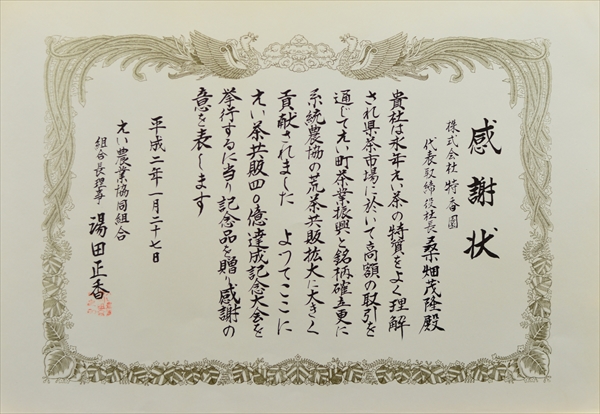 感謝状
株式会社 特香園
代表取締役社長 桑畑茂隆殿
貴社は永年えい茶の特質をよく理解
され県茶市場に於いて高額の取引を
通じてえい町茶業振興と銘柄確立更に
系統農協の荒茶共販拡大に大きく
貢献されました よってここに
えい茶共販四〇億達成記念大会を
挙行するに当り記念品を贈り感謝の
意を表します
平成二年一月二十七日
えい農業協同組合
組合長理事 湯田正香